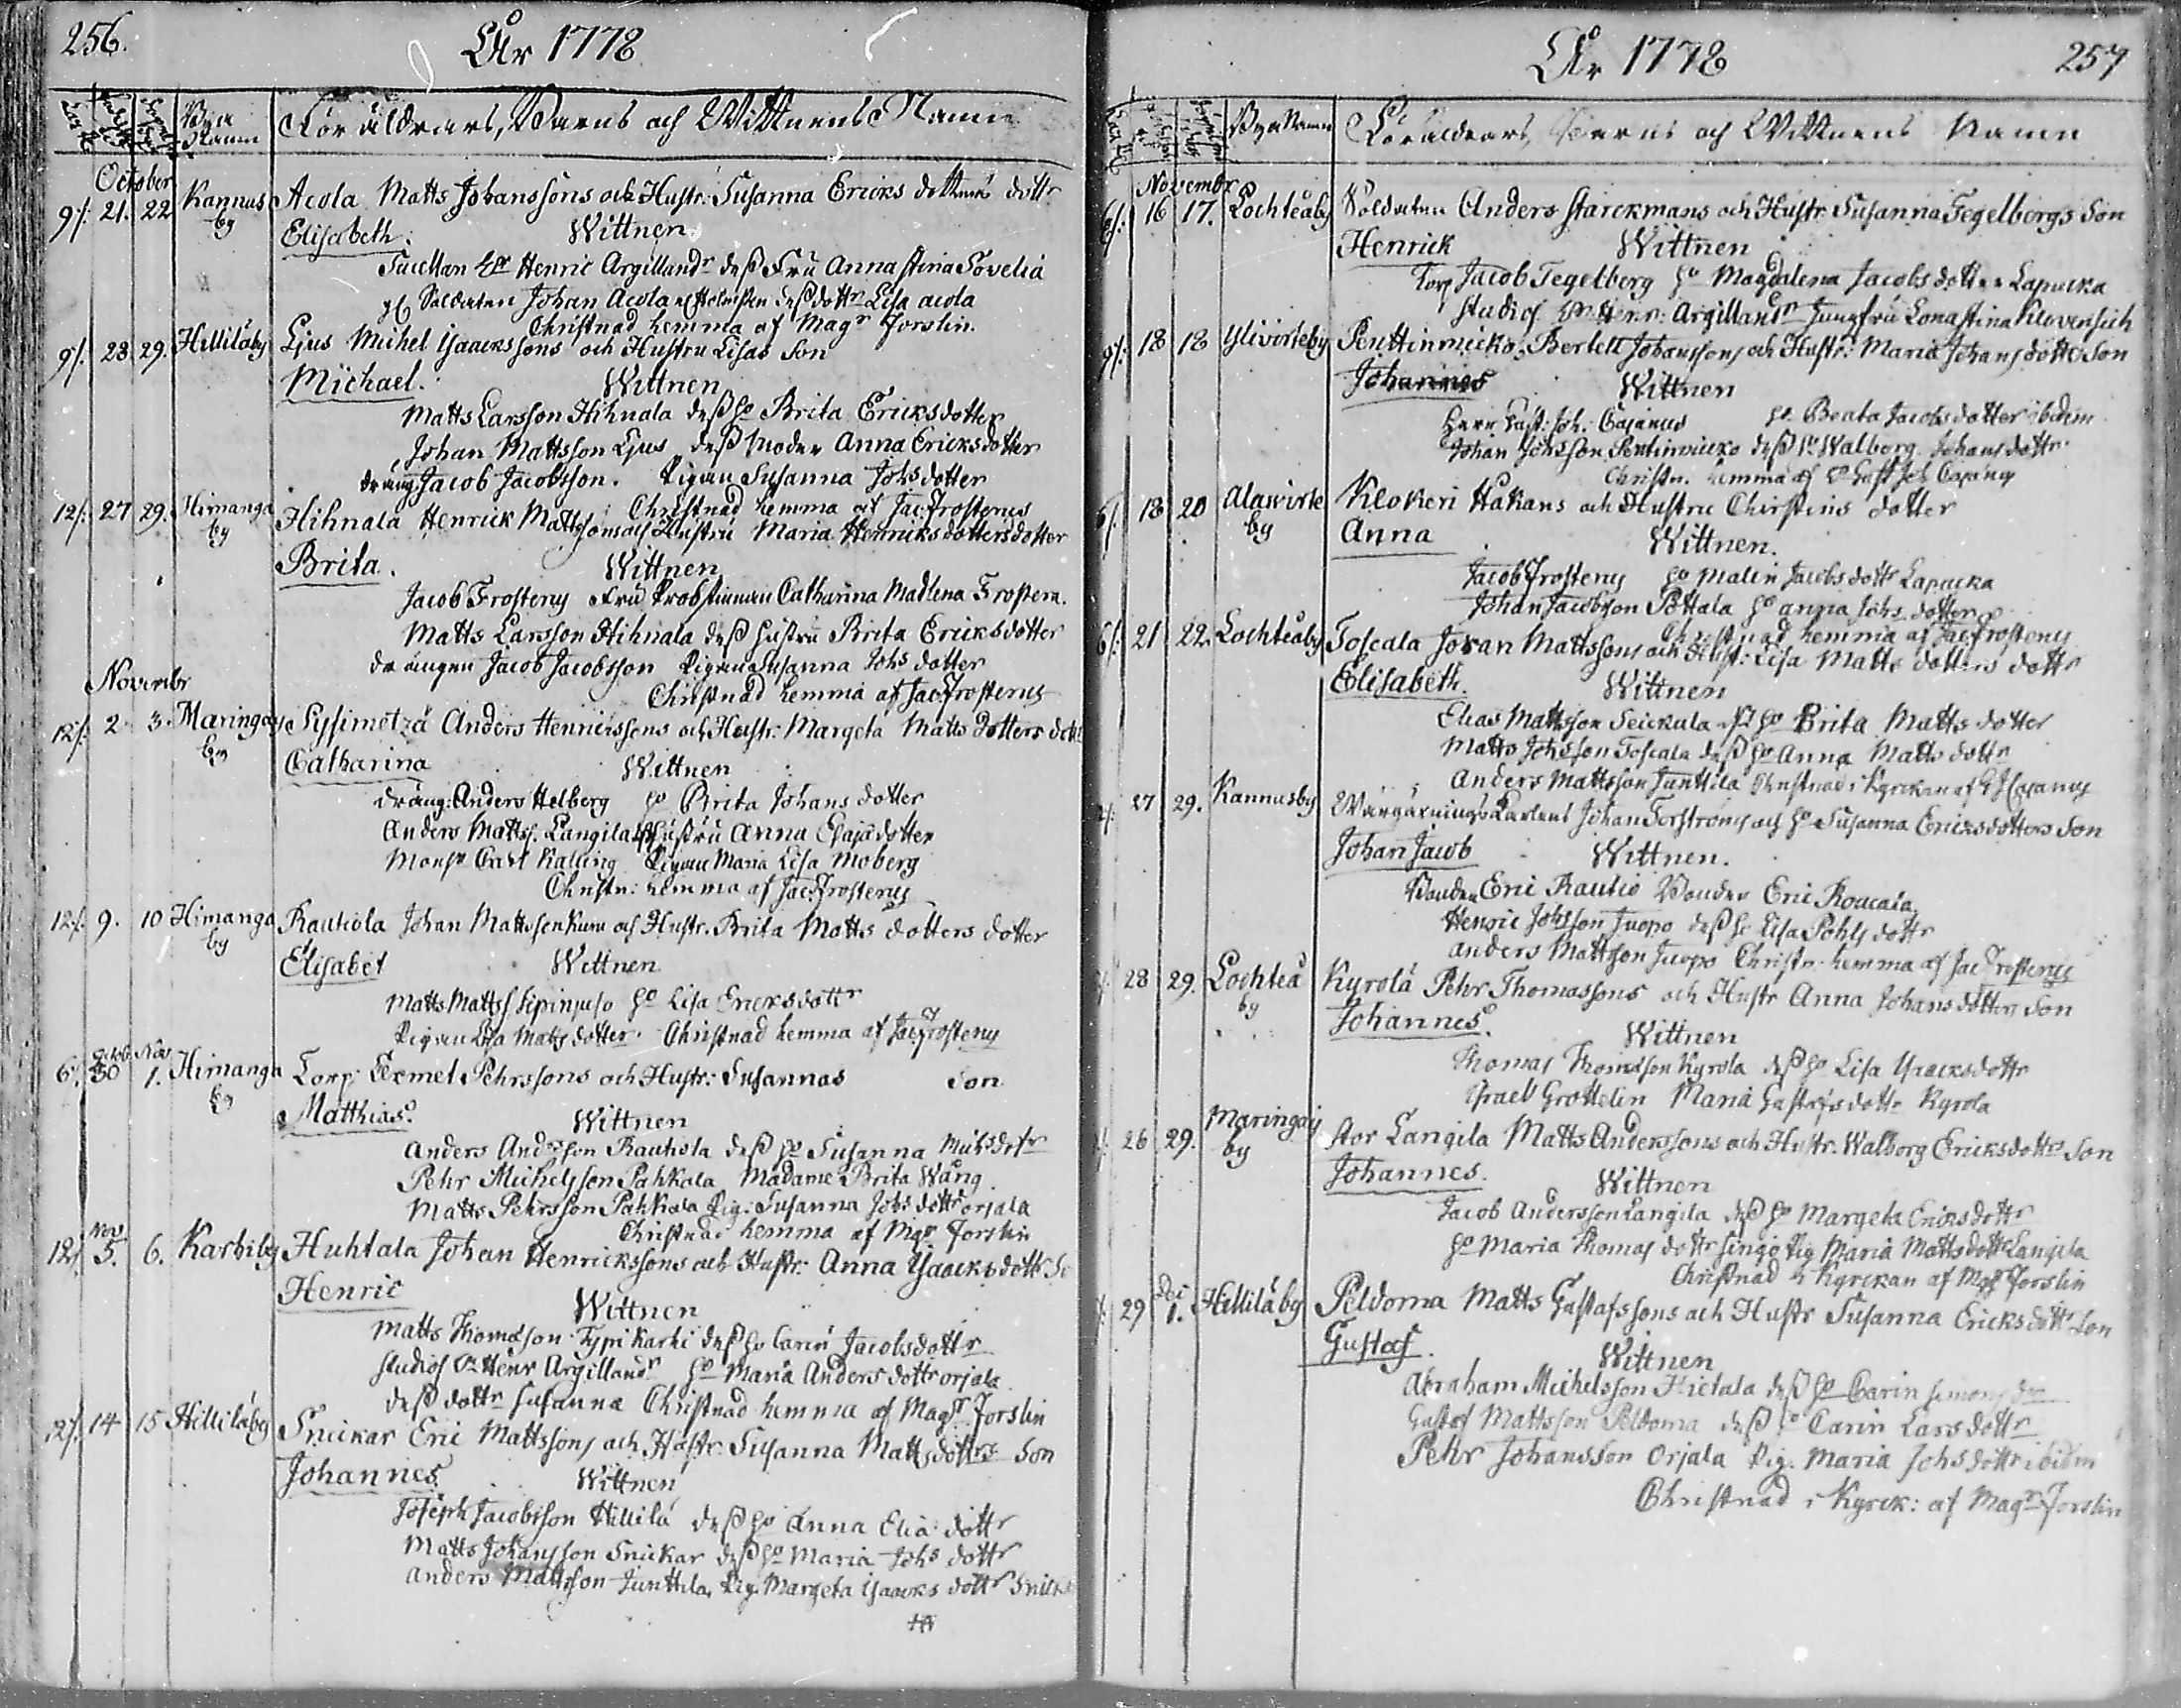 256.
År 1778
Bya Namn
Föräldrars, Barns och Wittnens Namn
October
9/. 21. 22 Kannus by Acola Matts Johanssons och Hustr: Susanna Ericks dotters dottr
Elisabeth. Wittnen
Henric Argillandr deß Fru Anna Stina Sovelia
Soldaten Johan Acola deß dottr Lisa acola
Christnad hemma af Magr Forslin.
9/. 28. 29. Hilliläby Ljus Michel Ysaacks sons och Hustru Lisas Son
Michael. Wittnen
Matts Larsson Hihnala deß ho Brita Ericksdotter
Johan Mattsson Ljus deß moder Anna Ericksdotter
dräng Jacob Jacobsson. Pigan Susanna Johsdotter
Christnad hemma af Jac: Frosterus
12/. 27 29. Himanga by Hihnala Henrick Mattssons och Hustru Maria Henricksdotters dotter
Brita. Wittnen
Jacob Frosterus Fru Probstinnan Catharina Madlena Frosterus
Matts Larsson Hihnala deß hustru Brita Ericksdotter
drängen Jacob Jacobsson Pigan Susanna Johs dotter
Christnad hemma af Jac Frosterus
Novembr
12/. 2. 3. Maringay by Sysimetzä Anders Henricssons och Hustr: Margeta Matts Dotters dott
Catharina Wittnen
dräng: Anders Helberg ho Brita Johans dotter
Anders Mattss. Langila Hustru Anna Esajadotter
Monsr Carl Kalling Pigan Maria Lisa Moberg
Christn: hemma af Jac: Frosterus
12/. 9. 10 Himanga by Rautiola Johan Mattsson Kuru och Hustr. Brita Matts dotters dotter
Elisabet Wittnen
Matts Mattss ho Lisa Ericksdottr
Pigan Lisa Matts dotter. Christnad hemma af Jac Frosterus
Octob. Nov
6/. 30 1. Himanga by Corp: Exmet Pehrssons och Hustr: Susannas Son
Matthias. Wittnen
Anders Andersson Rautiola deß ho Susanna
Pehr Michelsson Pahkala Madame Brita Wång
Matts Pehrsson Pahkala Pig: Susanna Johs dottr orjala
Christnad hemma af Mgr Forslin
Nov
12/. 5. 6. Karhiby Huhtala Johan Henrickssons och Hustr: Anna Ysaacks dottr So
Henric Wittnen
Matts Thomasson Typi Karhi deß ho Carin Jacobsdottr
Studios Hr Henr Argillandr ho Maria Anders dottr orjala
deß dottr Susanna Christnad hemma af Magr Forslin
12/. 14 15 Hilliläby Snickar Eric Mattssons och Hustr: Susanna Matts dottrs Son
Johannes. Wittnen
Joseph Jacobsson Hillilä deß ho Anna Eliä dottr
Matts Johansson Snickar deß ho Maria Johs dottr
Anders Mattsson Junttila, Pig. Margeta Ysaacks dottr Snick
År 1778 257
Bya Namn Föräldrars, Barns och Wittnens Namn
Novembr
6/. 16 17. Lochteåby Soldaten Anders Starckmans och Hustr: Susanna Tegelbergs Son
Henrick Wittnen
Corp Jacob Tegelberg ho Magdalena Jacobs dotter Lapucka
Studios Hr Henr: Argillandr Jungfru Lona Stina
9/. 18 18 Yliwirteby Penttinmicko Bertell Johanssons och Hustr: Maria Johans dottr Son
Johannes Wittnen
Herr Gust: Joh: Cajanus ho Beata Jacobsdotter ibidem
Johan Johsson Penttinmicko deß ho Walborg Johansdottr
Christn. hemma af Hr Gust Joh Cajanus
6/. 18 20 Alawirte by Klokeri Håkans och Hustru Christins dotter
Anna Wittnen.
Jacob Frosterus ho Malin Jacobsdottr Lapucka
Johan Jacobsson Pottala ho anna Johs dotter
Christnad hemma af Jac Frosterus
6/. 21 22. Lochteåby Toscala Johan Mattssons och Hust: Lisa Matts dotters dottr
Elisabeth. Wittnen
Elias Mattsson Seickala deß ho Brita Matts dotter
Matts Johsson Toscala deß ho Anna Matts dottr
Anders Mattsson Junttila Christnad i Kyrckan af G J Cajanus
27 29. Kannusby Wärgärnings Karlens Johan Forsströms och ho Susanna Ericksdotters Son
Johan Jacob Wittnen.
Bonden Eric Rautio Bonden Eric Roucala
Henric Johsson Juopo deß ho Lisa Pohls dottr
Anders Mattsson Juopo Christn. hemma af Jac Frosterus
28 29. Lochteå by Kyrolä Pehr Thomassons och Hustr Anna Johansdotters Son
Johannes. Wittnen
Thomas Thomasson Kyrola deß ho Lisa Ysacksdottr
Israel Grottelin Maria Gustafsdottr Kyrola
26 29. Maringay by Stor Langila Matts Anderssons och Hustr. Walborg Ericksdottrs Son
Johannes. Wittnen
Jacob Andersson Langila deß ho Margeta Ericksdottr
ho Maria Thomas dottr Singo Pig Maria Mattsdottr Langila
Christnad i Kyrckan af Mgr Forslin
Dec
29 1. Hilliläby Peldoma Matts Gustafssons och Hustr Susanna Ericksdottr Son
Gustaf. Wittnen
Abraham Michelsson Hietala deß ho Carin Simons dr
Gustaf Mattsson Peldoma deß ho Carin Larsdottr
Pehr Johansson Orjala Pig. Maria Johsdottr ibidm
Christnad i Kyrck: af Magr Forslin